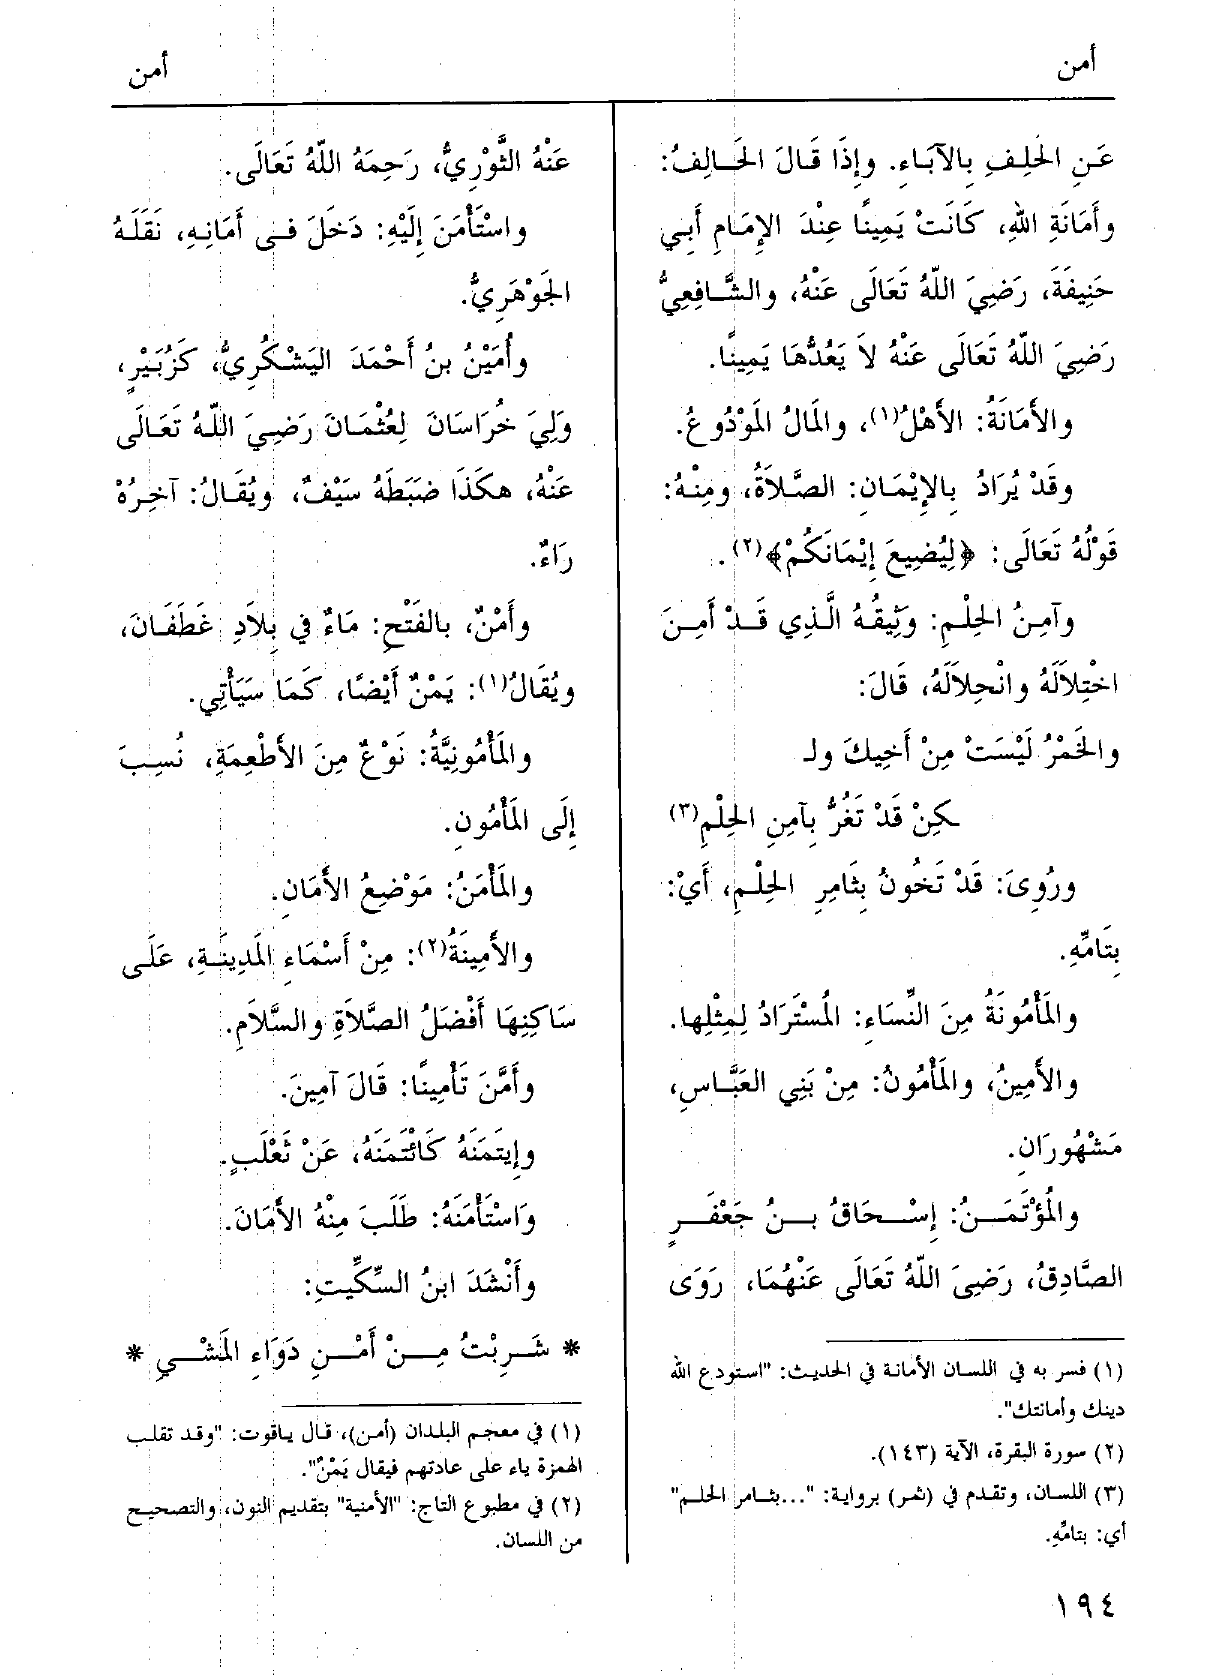 أمن
أمن
عَنِ الحَلِفِ بِالآبَاءِ. وإِذَا قَالَ الحَالِفُ:
وأَمَانَةِ اللهِ، كَانَتْ يَمِينًا عِنْدَ الإِمَامِ أَبِي
حَنِيفَةَ، رَضِيَ اللّهُ تَعَالَى عَنْهُ، والشَّافِعِيُّ
رَضِيَ اللّهُ تَعَالَى عَنْهُ لاَ يَعُدُّهَا يَمِينًا.
والأَمَانَةُ: الأَهْلُ(١)، والمَالُ المَوْدُوعُ.
وقَدْ يُرَادُ بِالإِيْمَانِ: الصَّلاَةُ، ومِنْهُ:
قَوْلُهُ تَعَالَى: ﴿لِيُضِيعَ إِيْمَانَكُمْ﴾(٢).
وآمِنُ الحِلْمِ: وَثِيقُهُ الَّذِي قَدْ أَمِنَ
اخْتِلاَلَهُ وانْحِلاَلَهُ، قَالَ:
والخَمْرُ لَيْسَتْ مِنْ أَخِيكَ ولـ
ـكِنْ قَدْ تَغُرُّ بِآمِنِ الحِلْمِ(٣)
ورُوِىَ: قَدْ تَخُونُ بِثَامِرِ الحِلْمِ، أَيْ:
بِتَامِّهِ.
والمَأْمُونَةُ مِنَ النِّسَاءِ: المُسْتَرَادُ لِمِثْلِها.
والأَمِينُ، والمَأْمُونُ: مِنْ بَنِي العَبَّاسِ،
مَشْهُورَانِ.
والمُؤْتَمَنُ: إِسْحَاقُ بنُ جَعْفَرٍ
الصَّادِقُ، رَضِيَ اللّهُ تَعَالَى عَنْهُمَا، رَوَى
(١) فسر به في اللسان الأمانة في الحديث: "استودع الله
دينك وأمانتك".
(٢) سورة البقرة، الآية (١٤٣).
(٣) اللسان، وتقدم في (ثمر) برواية: "...بثامر الحلم"
أي: بتامِّهِ.
عَنْهُ الثَّوْرِيُّ، رَحِمَهُ اللّهُ تَعَالَى.
واسْتَأْمَنَ إِلَيْهِ: دَخَلَ فى أَمَانِهِ، نَقَلَهُ
الجَوْهَرِيُّ.
وأُمَيْنُ بنُ أَحْمَدَ اليَشْكُرِيُّ، كَزُبَيْرٍ،
وَلِيَ خُرَاسَانَ لِعُثْمَانَ رَضِيَ اللّهُ تَعَالَى
عَنْهُ، هكَذَا ضَبَطَهُ سَيْفٌ، ويُقَالُ: آخِرُهُ
رَاءٌ.
وأَمْنٌ، بالفَتْحِ: مَاءٌ في بِلاَدِ غَطَفَانَ،
ويُقَالُ(١): يَمْنٌ أَيْضًا، كَمَا سَيَأْتِي.
والمَأْمُونِيَّةُ: نَوْعٌ مِنَ الأَطْعِمَةِ، نُسِبَ
إِلَى المَأْمُونِ.
والمَأْمَنُ: مَوْضِعُ الأَمَانِ.
والأَمِينَةُ(٢): مِنْ أَسْمَاءِ المَدِينَةِ، عَلَى
سَاكِنِهَا أَفْضَلُ الصَّلاَةِ والسَّلاَمِ.
وأَمَّنَ تَأْمِينًا: قَالَ آمِينَ.
وإِيتَمَنَهُ كَائْتَمَنَهُ، عَنْ ثَعْلَبٍ.
وَاسْتَأْمَنَهُ: طَلَبَ مِنْهُ الأَمَانَ.
وأَنْشَدَ ابنُ السِّكِّيتِ:
* شَرِبْتُ مِنْ أَمْنِ دَوَاءِ المَشْيِ *
(١) في معجم البلدان (أمن)، قال ياقوت: "وقد تقلب
الهمزة ياء على عادتهم فيقال يَمْنٌ".
(٢) في مطبوع التاج: "الأمنية" بتقديم النون، والتصحيح
من اللسان.
١٩٤